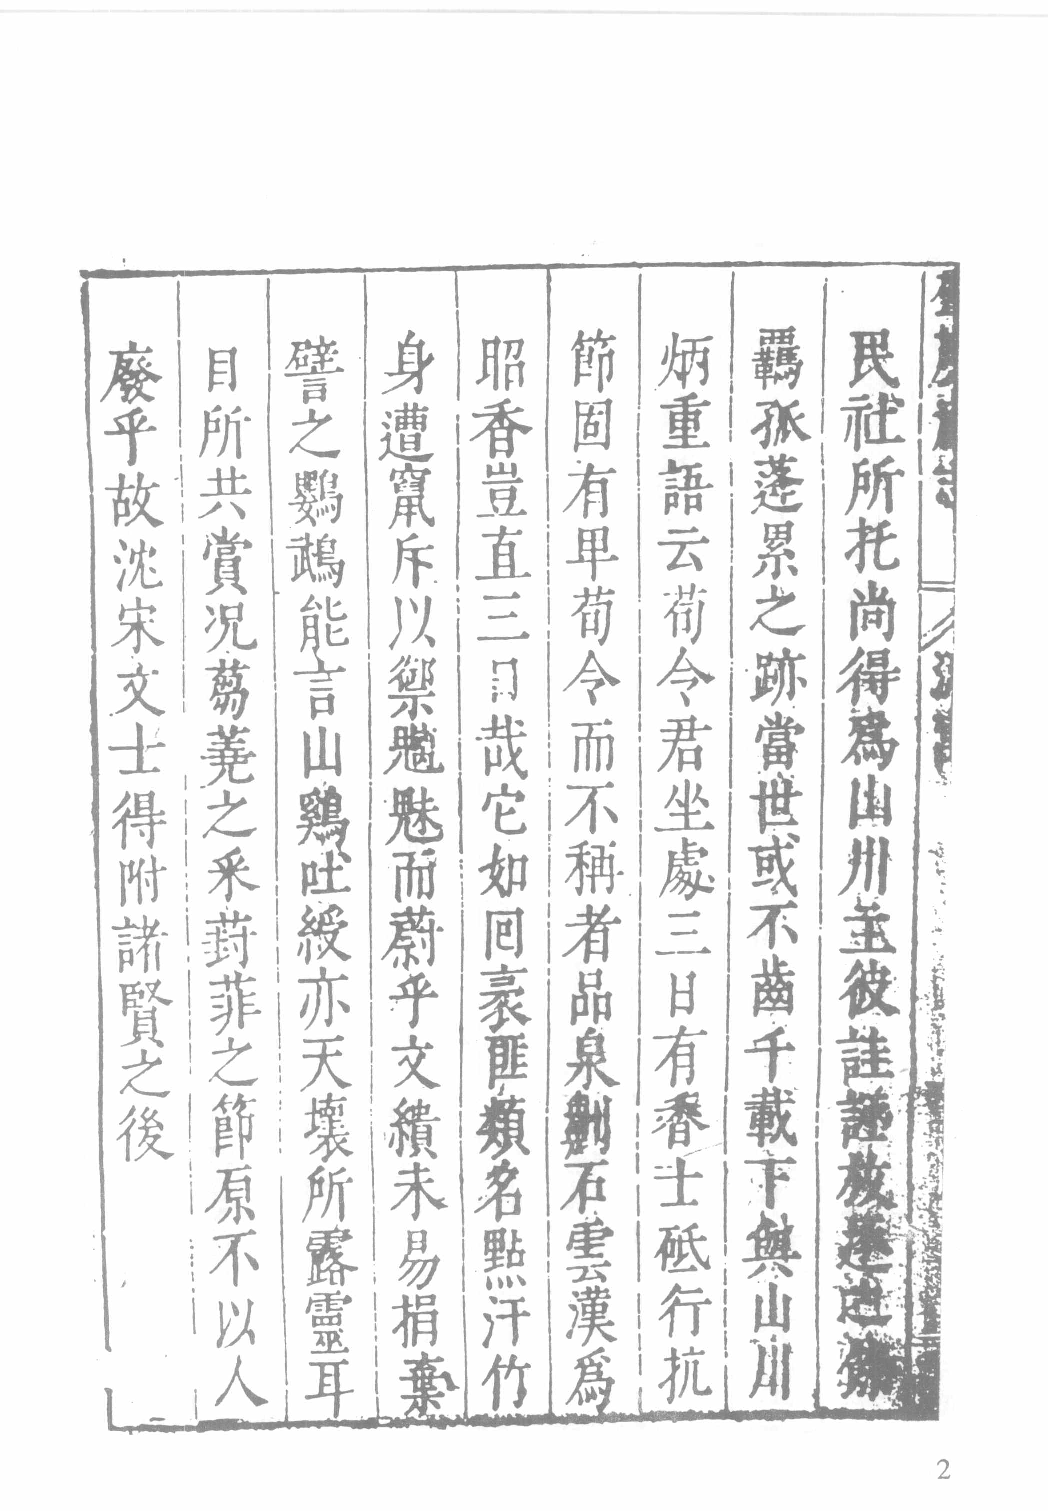 民社所托尚得爲山州至彼詿誤放逐之餘
羈孤蓬累之跡當世或不齒千載下與山川
炳重語云荀令君坐處三日有香士砥行抗
節固有卑荀令而不稱者品泉劖石雲漢爲
昭香豈直三日哉它如回豪匪類名點汗竹
身遭竄斥以禦魑魅而蔚乎文繢未易捐棄
譬之鸚鵡能言山鷄吐綬亦天壤所露靈耳
目所共賞况芻蕘之釆葑菲之節原不以人
廢乎故沈宋文士得附諸賢之後
2